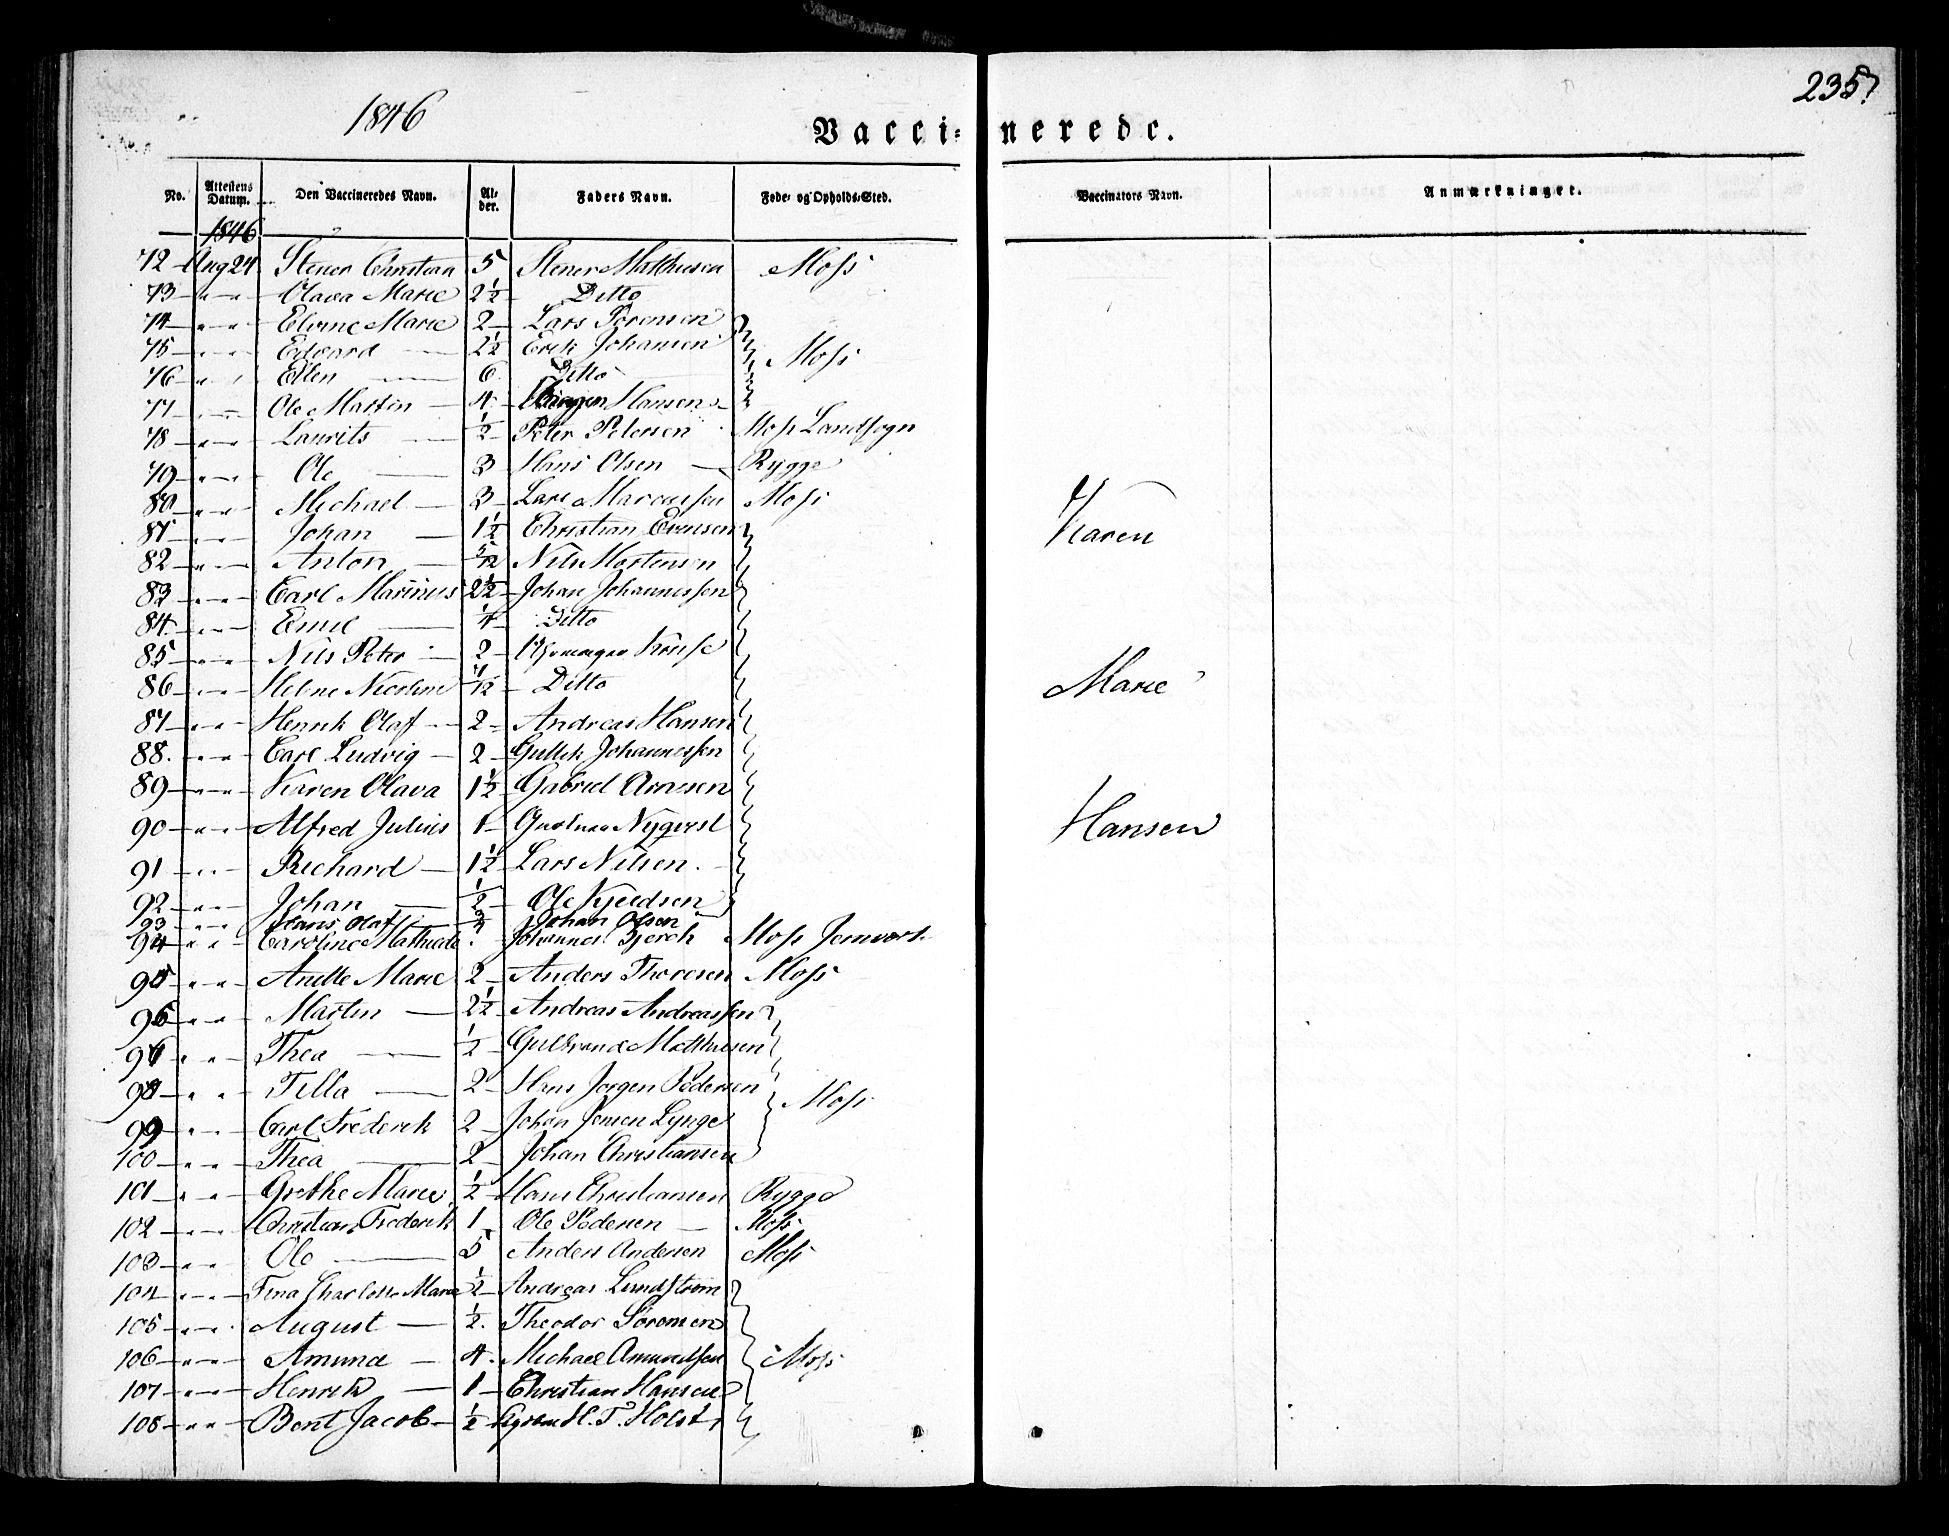 235
1846
Vacci=nerede.
No. Attestens Datum. Den Vaccineredes Navn. Al-der. Faders Navn. Føde- og Opholds-Sted. Vaccinators Navn. Anmærkninger.
1846
72 Aug 24 Stener Christian 5 Stener Mathisen Moss
73 " " Olava Marie 2½ Ditto
74 " " Elvine Marie 2 Lars Sørensen
75 " " Edvard 2½ Erik Johansen Moss
76 " " Ellen 6 Ditto
77 " " Ole Martin 4 Hansen
78 " " Laurits ½ Peter Petersen Moss Landsogn
79 " " Ole 3 Hans Olsen Rygge
80 " " Michael 3 Lars Marcussen Moss
81 " " Johan 1½ Christian Evensen Karen
82 " " Anton 5/12 Nils Mortensen
83 " " Carl Marinius 2½ Johan Johannessen
84 " " Emil ¼ Ditto
85 " " Nils Peter 2
86 " " Helene Nicoline Ditto Marie
87 " " Henrik Olaf 2 Andreas Hansen
88. " " Carl Ludvig 2 Gullik Johannessen
89 " " Karen Olava 1½ Gabriel Arnesen
90 " " Alfred Julius 1 Hansen
91 " " Richard 1½ Lars Nilsen.
92 " " Johan ½ Ole Kjeldsen
93 " " Hans Olaf Johan Olsen
94 " " Caroline Mathilde Johannes Bjerck Moss Jernværk
95 " " Anette Marie 2 Anders Thoresen Moss
96 " " Martin 2½ Andreas Andreassen
97 " " Thea ½ Gulbrand Mathisen
98 " " Tilla 2 Hans Jørgen Pedersen Moss
99 " " Carl Frederik 2 Johan Jensen Lynge
100 " " Thea 2 Johan Christiansen
101 " " Grethe Marie ½ Hans Christiansen Rygge
102 " " Christian Frederik 1 Ole Pedersen Moss
103 " " Ole 5 Anders Andersen Moss
104 " " Tina Charlotte Marie ½ Andreas Lundstrøm
105 " " August ½. Theodor Sørensen
106 " " Amund 4. Michael Amundsen Moss
107 " " Henrik 1 Christian Hansen
108 " " Bent Jacob ½ H. T. Holst